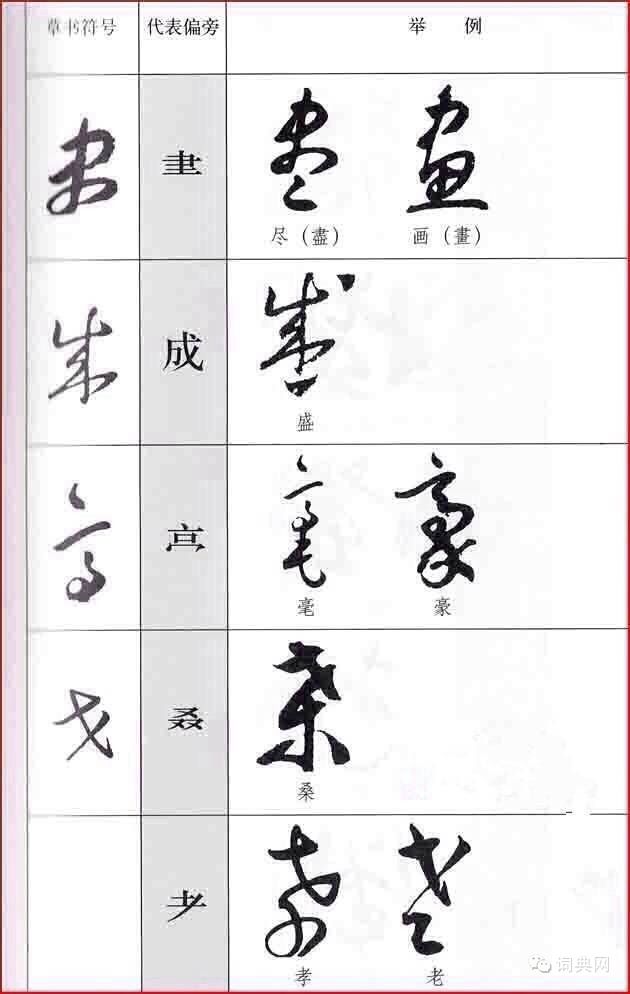 草书符号 代表偏旁 举例
肀 尽(盡) 画(畫)
成 盛
亯 毫 豪
叒 桑
耂 孝 老
词典网